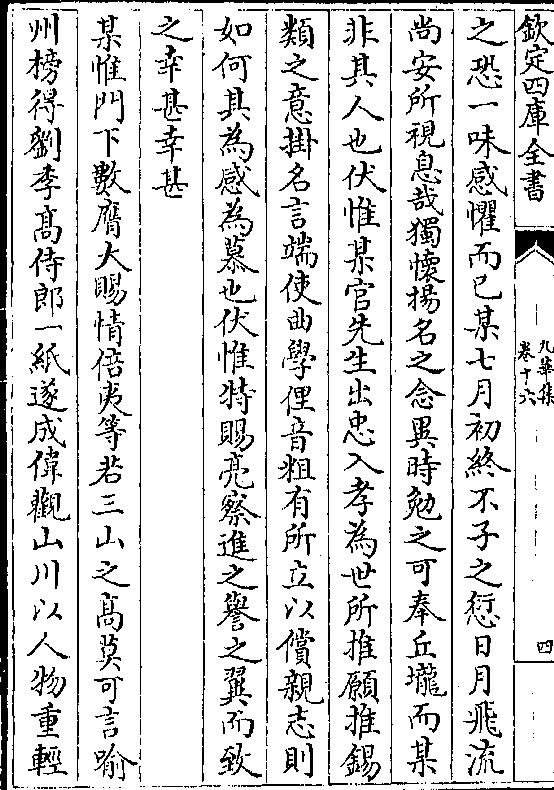 欽定四庫全書
九華集
卷十六
四
之恐一味感懼而已某七月初終不子之愆日月飛流
尚安所視息哉獨懷揚名之念異時勉之可奉丘壠而某
非其人也伏惟某官先生出忠入孝為世所推願推錫
類之意掛名言端使曲學俚音粗有所立以償親志則
如何其為感為慕也伏惟特賜亮察進之譽之翼而致
之幸甚幸甚
某惟門下數膺大賜情倍夷等若三山之髙莫可言喻
州榜得劉李髙侍郎一紙遂成偉觀山川以人物重輕